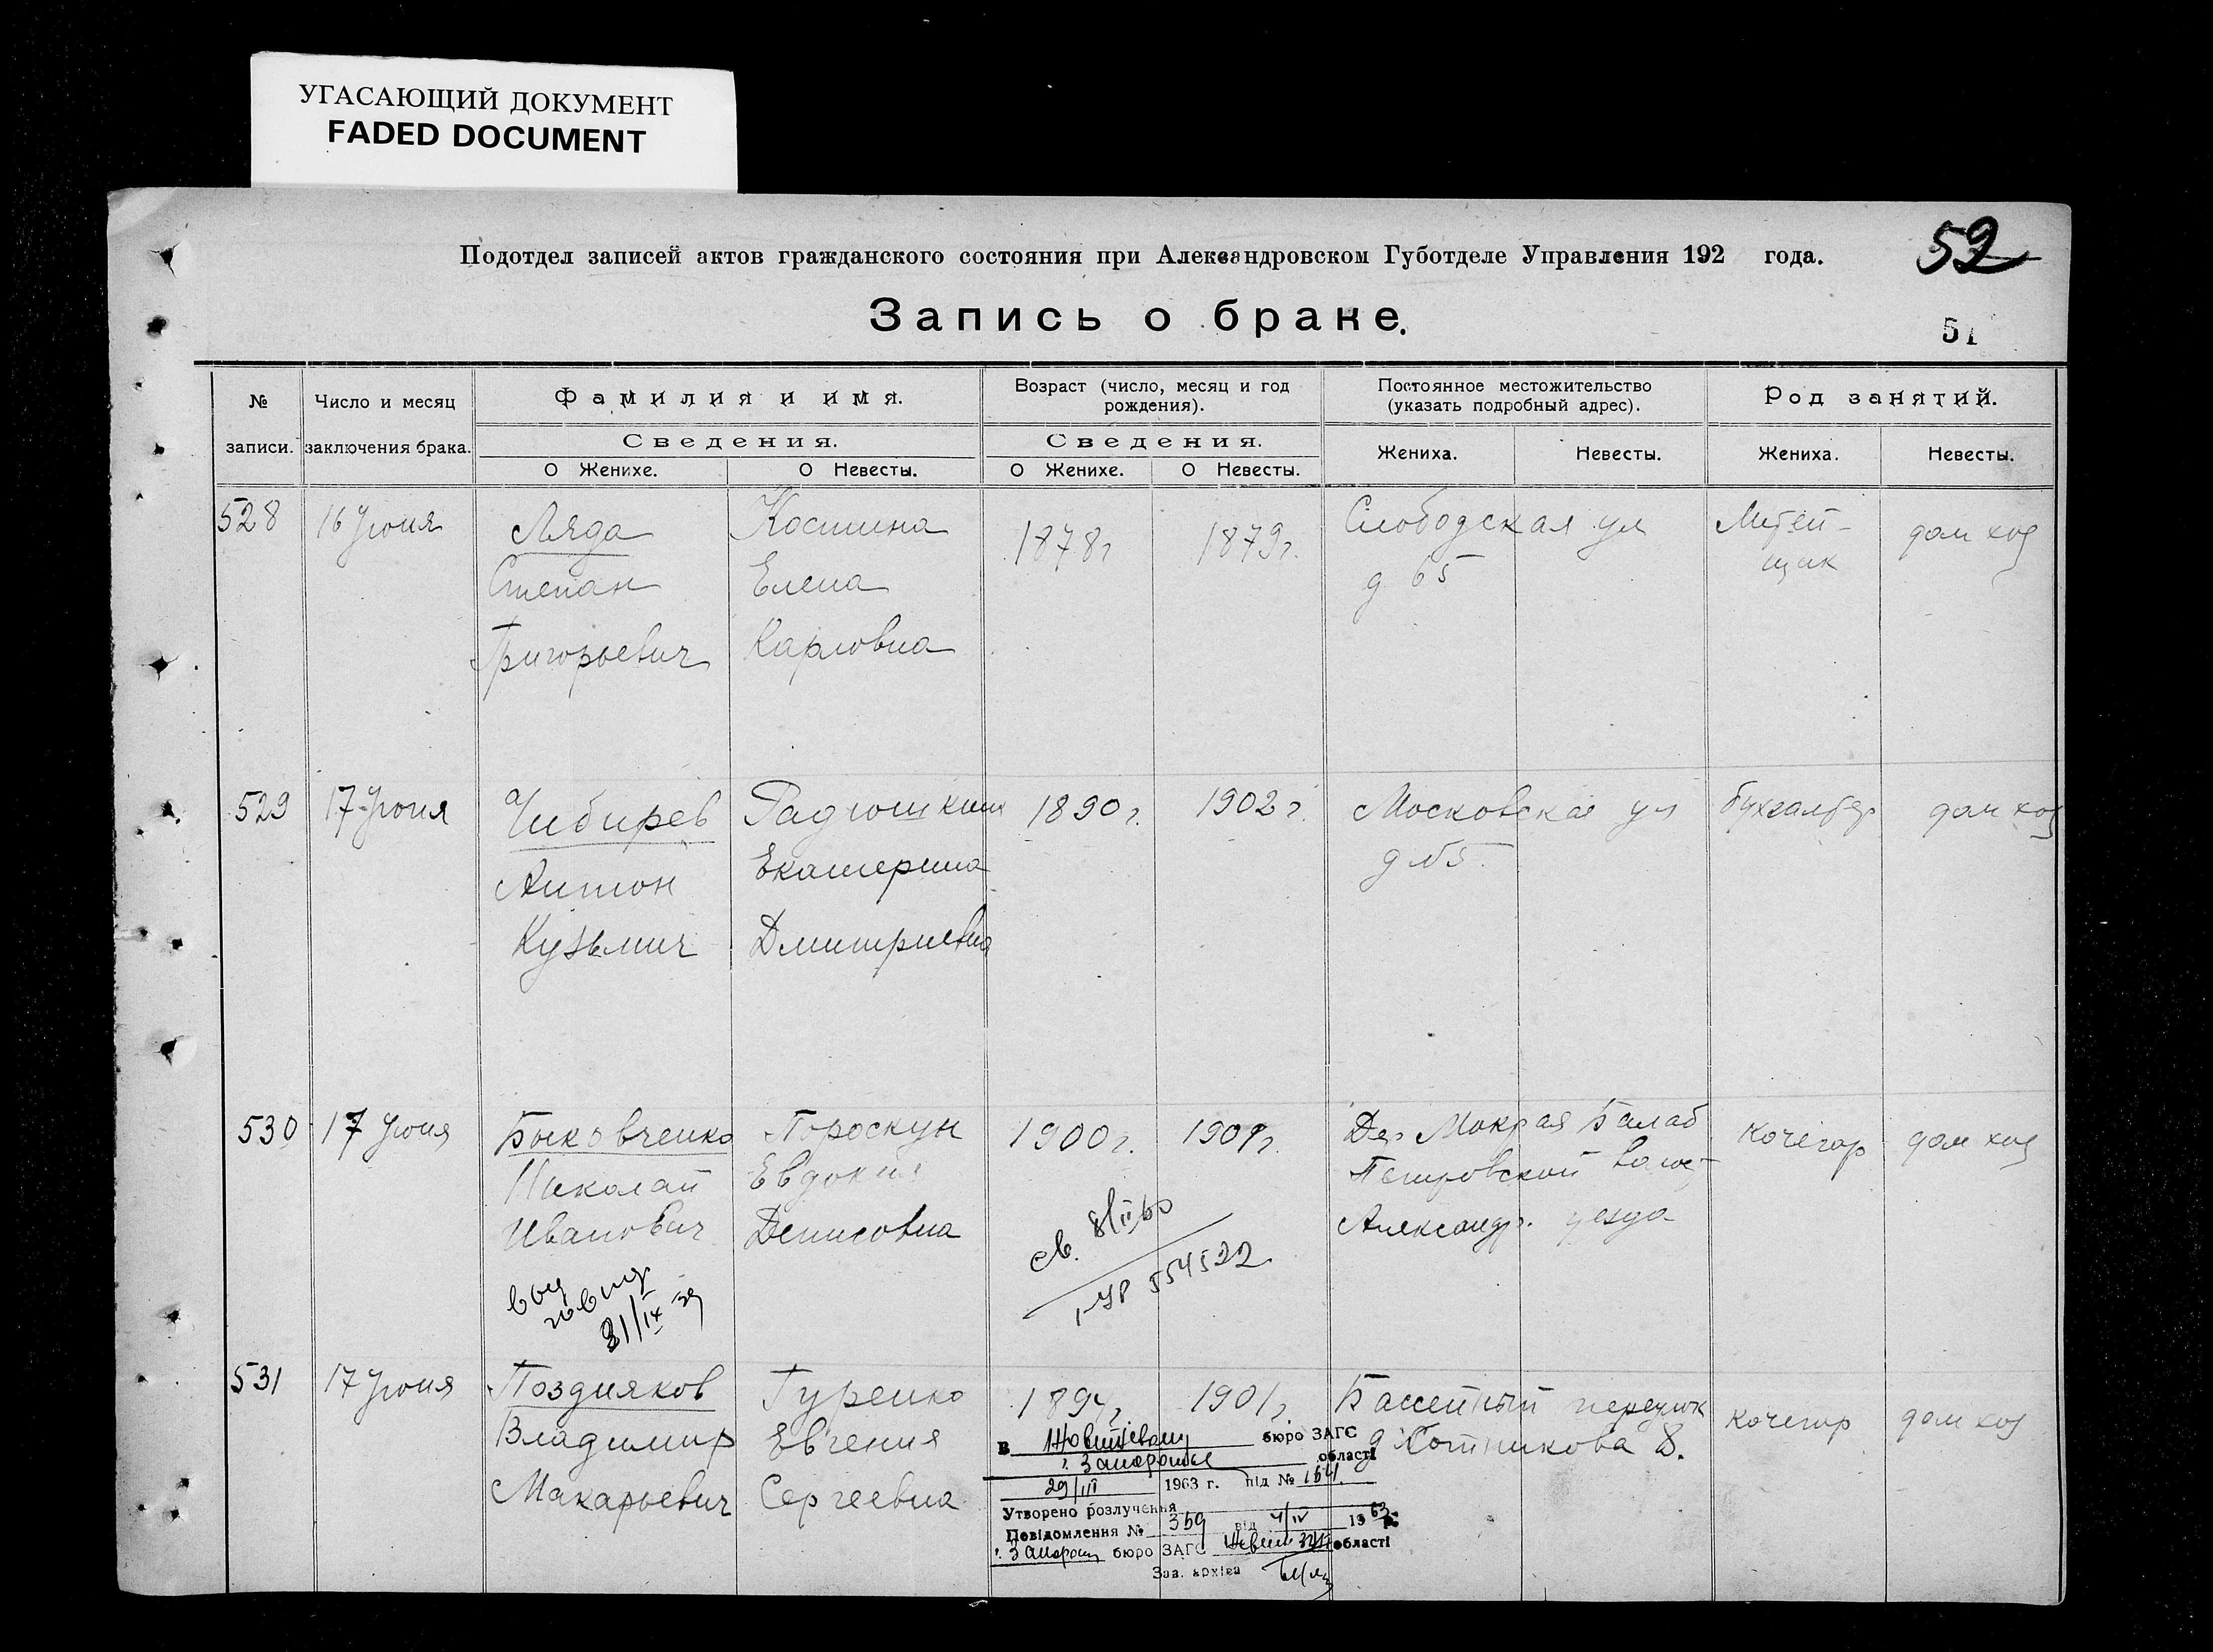 УГАСАЮЩИЙ ДОКУМЕНТ
FADED DOCUMENT
52
Подотдел записей актов гражданского состояния при Александровском Губотделе Управления 192 года.
Запись о браке.
51
№ записи.
Число и месяц заключения брака.
Фамилия и имя.
Сведения.
О Женихе.
О Невесты.
Возраст (число, месяц и год рождения).
Сведения.
О Женихе.
О Невесты.
Постоянное местожительство (указать подробный адрес).
Жениха.
Невесты.
Род занятий.
Жениха.
Невесты.
528 16 Июня Ляда Костина 1878г 1879г. Слободская ул Литей- дом хоз
Степан Елена д 65 щик
Григорьевич Карловна
529 17 Июня Чибирев Радюшкина 1890г. 1902г. Московская ул бухгалтер дом хоз
Антон Екатерина д №5
Кузьмич Дмитриевна
530 17 Июня Быковченко Пороскун 1900г. 1901г. Дер Мокрая Балаб кочегар дом хоз
Николай Евдокия Петровской волост
Иванович Денисовна Александр. уезда
св. 8/II 60
554522
31/IX 39
531 17 Июня Поздняков Гуренко 1894г 1901г Бассейный переулок кочегар дом хоз
Владимир Евгения д Котликова 8.
Макарьевич Сергеевна
В Жовтневому бюро ЗАГС
г. Запоріжжя області
29/III 1963 г. під № 154
Утворено розлучення
Повідомлення № 359 від 4/IV 1963
г. Запоріж бюро ЗАГС області
Зав. архіва